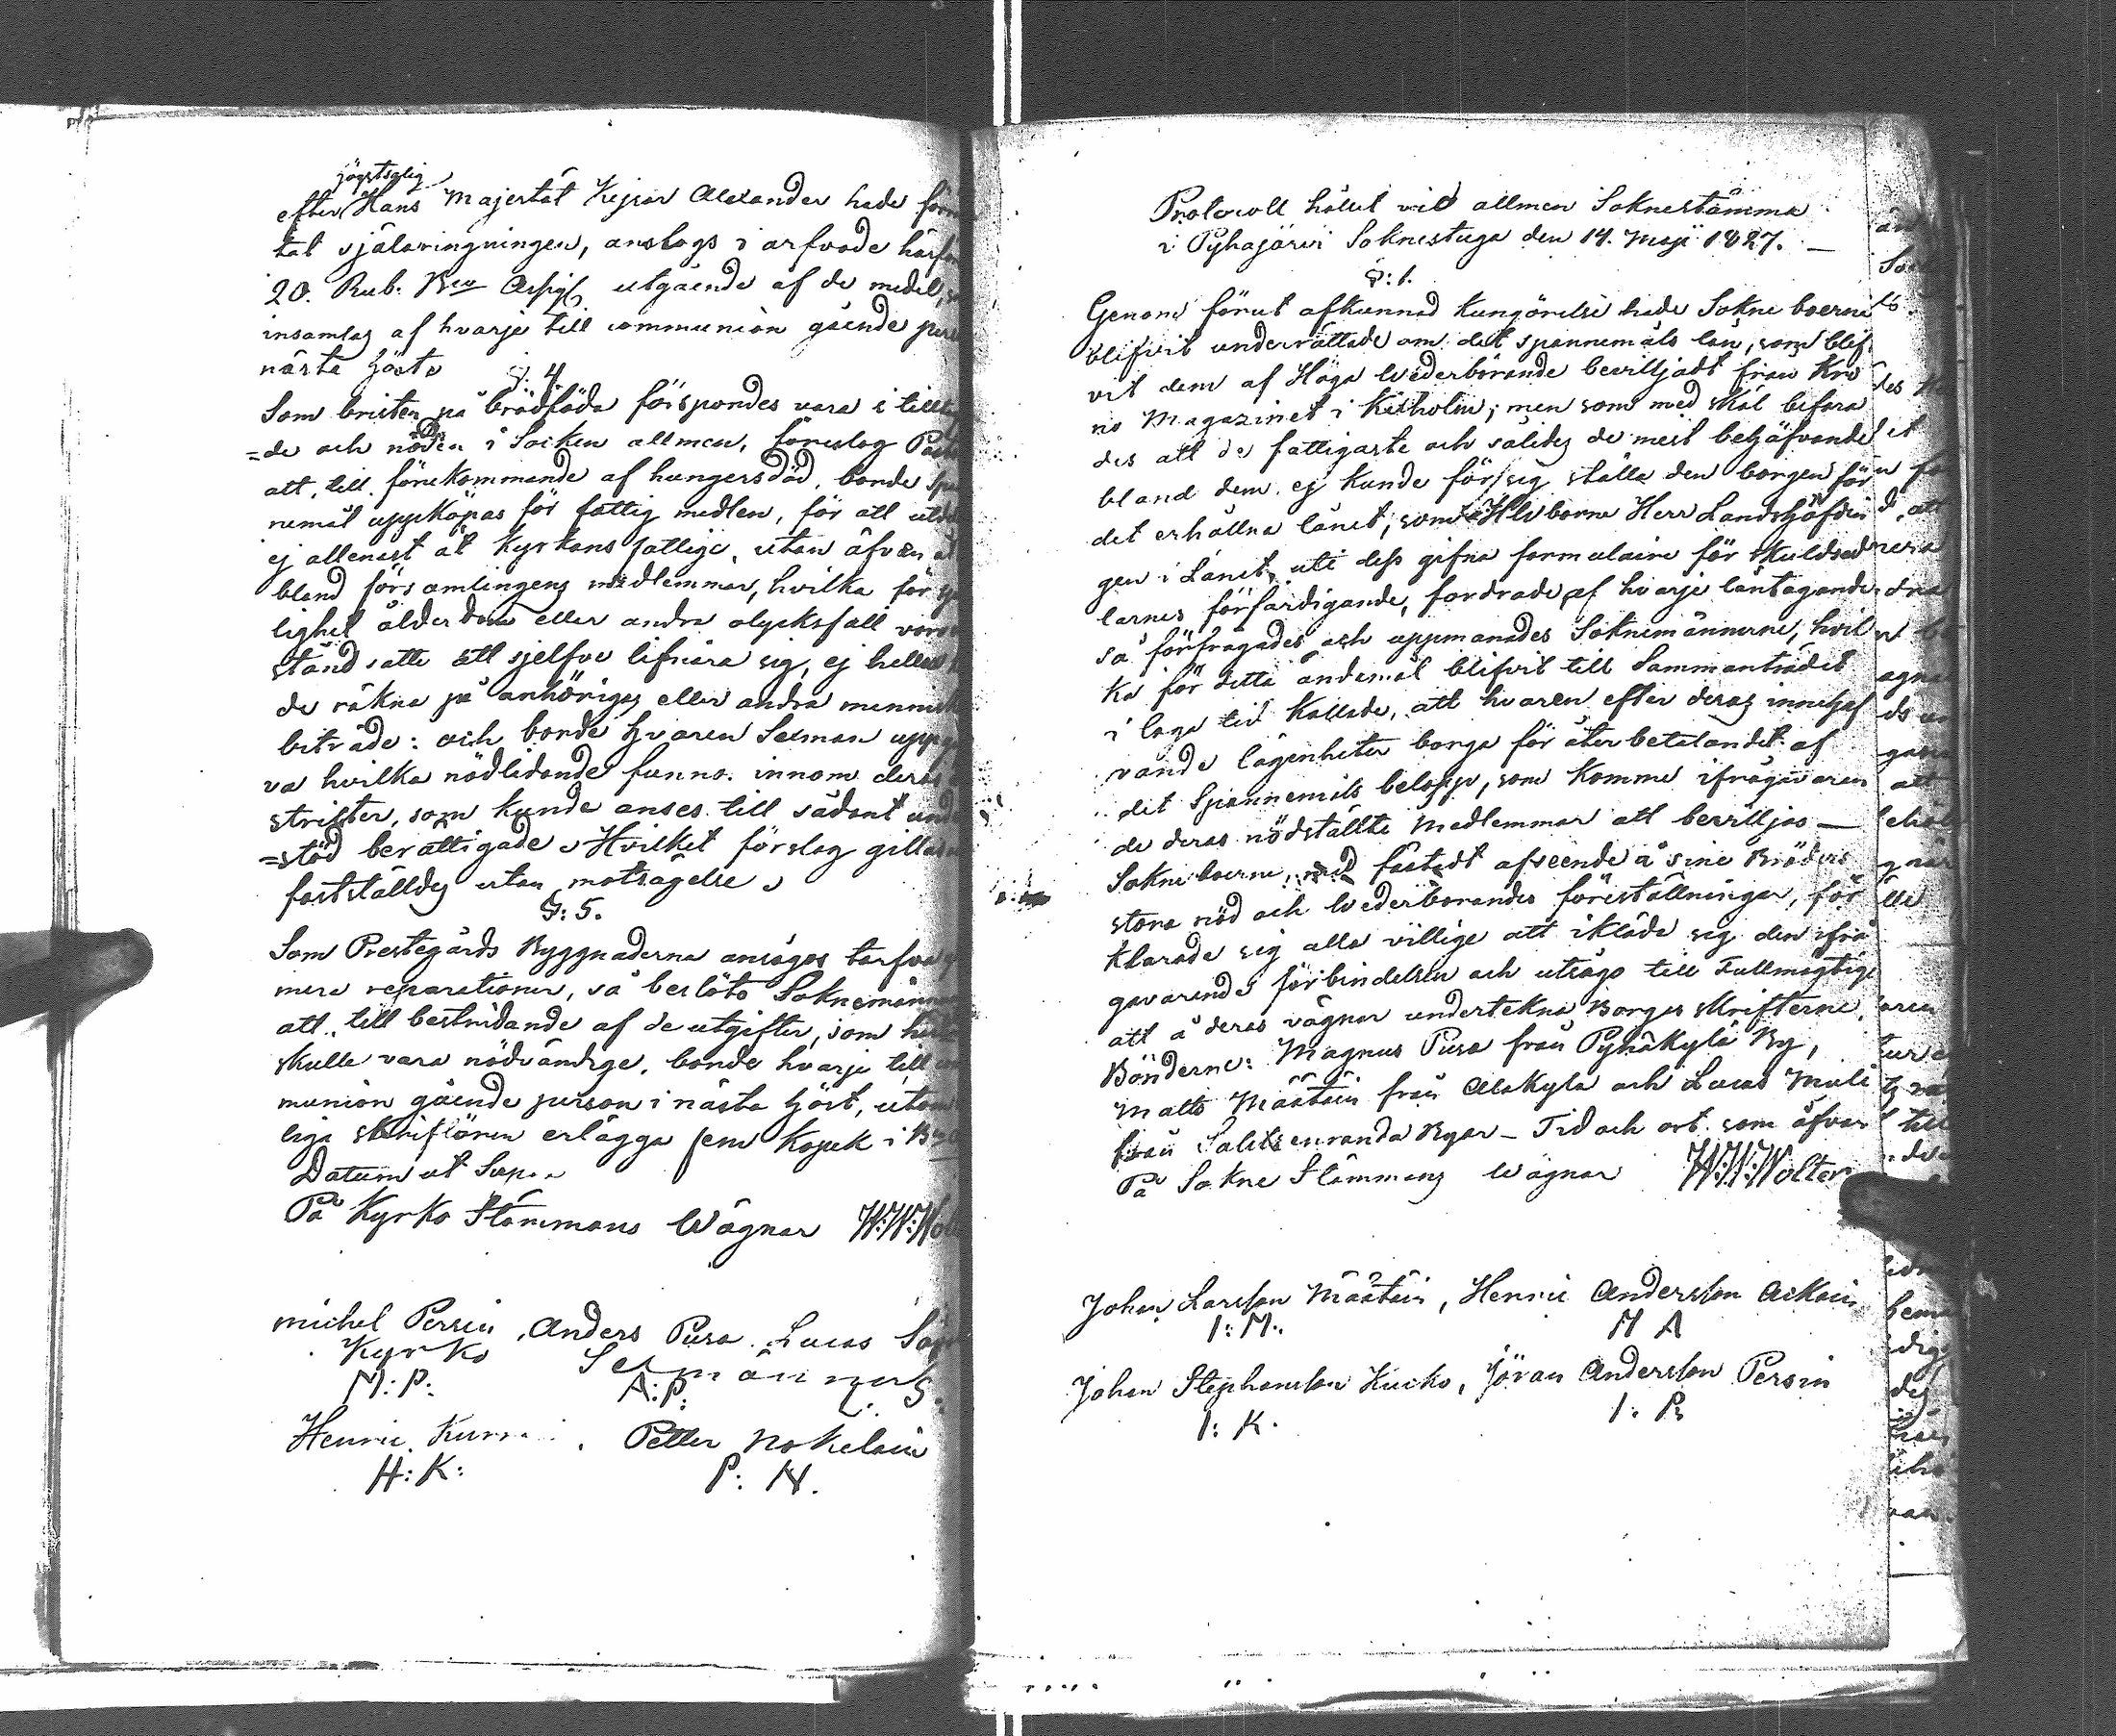 högstsalig
efter Hans Majestät Kejsar Alexander hade förrä
tat själaringningen, anslogs i arfvode härför
20. Rub. Bco Assign utgående af de medel,
insamlas af hvarje till communion gående pers
nästa höst.
§: 4
Som bristen på brödföda förspordes vara i tillta
=de och nöden i Socken allmen, föreslog Past
att, till förekommande af hungersdöd, borde Spa
nemål uppköpas för fattig medlen, för att utdel
ej allenast åt Kyrkans fattige, utan äfven åt
bland församlingens medlemmar, hvilka för sju
lighet ålderdom eller andra olycksfall voro
stånd satte att sjelfve lifnära sig, ej heller
de räkna på anhörigas eller andra mennisk
biträde: och borde hvaren Sexman uppgi
va hvilka nödlidande funnos innom deras
strikter, som kunde anses till sådant und
=stöd berättigade. Hvilket förslag gillades
fastställdes utan motsägelse.
§: 5.
Som Prestegårds Byggnaderna ansågos tarfva
mera reparationer, så beslöto Soknemännerne
att, till bestridande af de utgifter, som här
skulle vara nödvändige, borde hvarje till com
munion gående person i nästa höst, utom
liga skriftören erlägga fem Kopek i Bco
Datum ut Supra
På Kyrko Stämmans Wägnar W:W:Wolter
Michel Persin, Anders Pusa, Lucas
Kyrko Sexmänner
M: P: A: P: L: S:
Henric Kurri. Petter Nokelain
H: K: P: N.
Protocoll hållet vid allmen Soknestämma
i Pyhäjärvi Soknestuga den 14. Maji 1827. —
§: 1.
Genom förut afkunnad Kungörelse hade Sokne boerne
blifvit underrättade om det spannemåls lån, som blif
vit dem af Höga Wederbörande bevilljadt från Kro
no Magazinet i Kexholm; men som med skäl befara
des att de fattigaste och således de mest behöfvande
bland dem ej kunde för sig ställa den borgen för
det erhållna lånet, som HWborne Herr Landshöfdin
gen i Länet, uti dess gifna formulaire för skuldsed
larnes förfärdigande, fordrade af hvarje låntagande
så förfrågades och uppmanades Soknemännerne, hvil
ka för detta ändamål blifvit till Sammanträdet
i laga tid kallade, att hvaren efter deras innehaf
vande lägenheter borga för återbetalandet af
det Spannemåls belopp, som komme ifrågavaren
de deras nödställte Medlemmar att bevilljas —
Sokneboerne, med fästadt afseende å sine Bröders
stora nöd och Wederbörandes föreställningar, för
klarade sig alla villige att ikläda sig den ifrå
gavarende förbindelsen och utsågo till Fullmägtige
att å deras vägnar underteckna Borges skrifterne,
Bönderne: Magnus Pusa från Pyhäkylä By,
Matts Määttäin från Alakylä och Lucas Muli
från Salitsanranda Byar — Tid och ort som ofvan
På Sokne Stämmans Wägnar W:W:Wolter
Johan Larsson Määttäin, Henric Andersson Ackain
I: M: H A
Johan Stephansson Kucko, Jöran Andersson Persin
I: K. I: P: